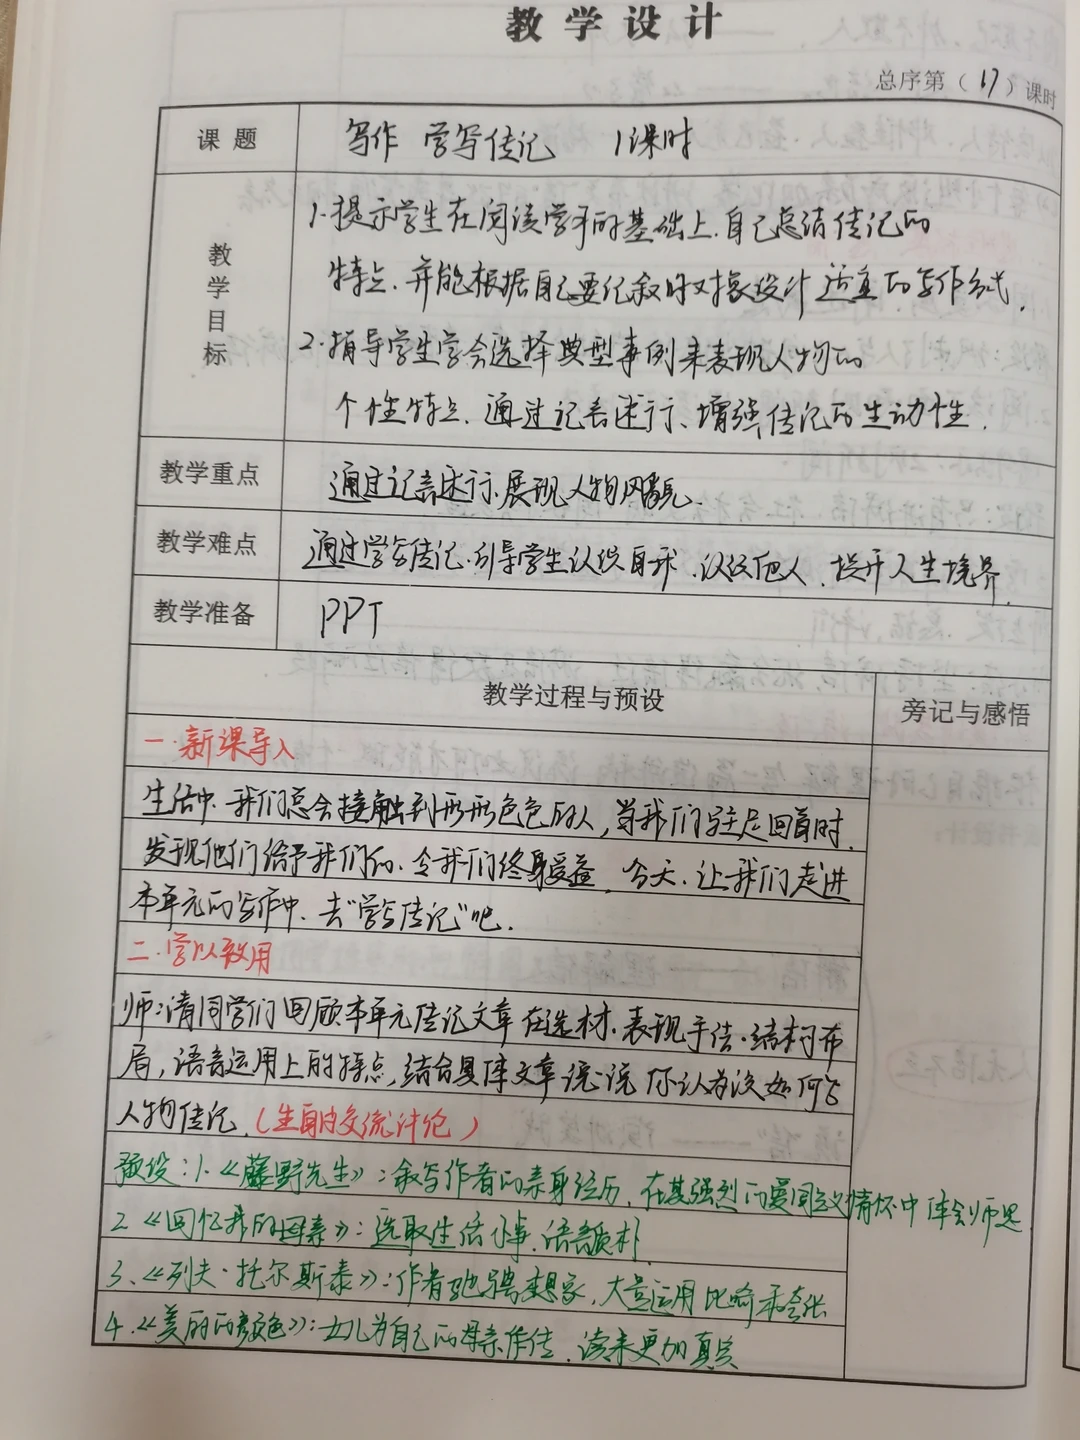 教学设计
总序第（17）课时
课题 写作 学写传记 1课时
教学目标
1.提示学生在阅读学习的基础上.自己总结传记的
特点.并能根据自己要纪叙的对象设计适宜的写作方式.
2.指导学生学会选择典型事例来表现人物的
个性特点.通过记言述行、增强传记的生动性.
教学重点 通过记言述行.展现人物风貌.
教学难点 通过学写传记.引导学生认识自我.议议他人.提升人生境界.
教学准备 PPT
教学过程与预设 旁记与感悟
一.新课导入
生活中.我们总会接触到形形色色的人,当我们驻足回首时.
发现他们给予我们的.令我们终身受益.今天.让我们走进
本单元的写作中.去"学写传记"吧.
二.学以致用
师:请同学们回顾本单元传记文章在选材.表现手法.结构布
局,语言运用上的特点,结合具体文章说说你认为该如何写
人物传记.(生自由交流讨论)
预设:1.《藤野先生》:叙写作者的亲身经历.在其强烈的爱国主义情怀中体会师恩
2《回忆我的母亲》:选取生活小事.语言质朴
3、《列夫·托尔斯泰》:作者驰骋想象,大量运用比喻和夸张
4.《美丽的颜色》:女儿为自己的母亲作传.读来更加真实